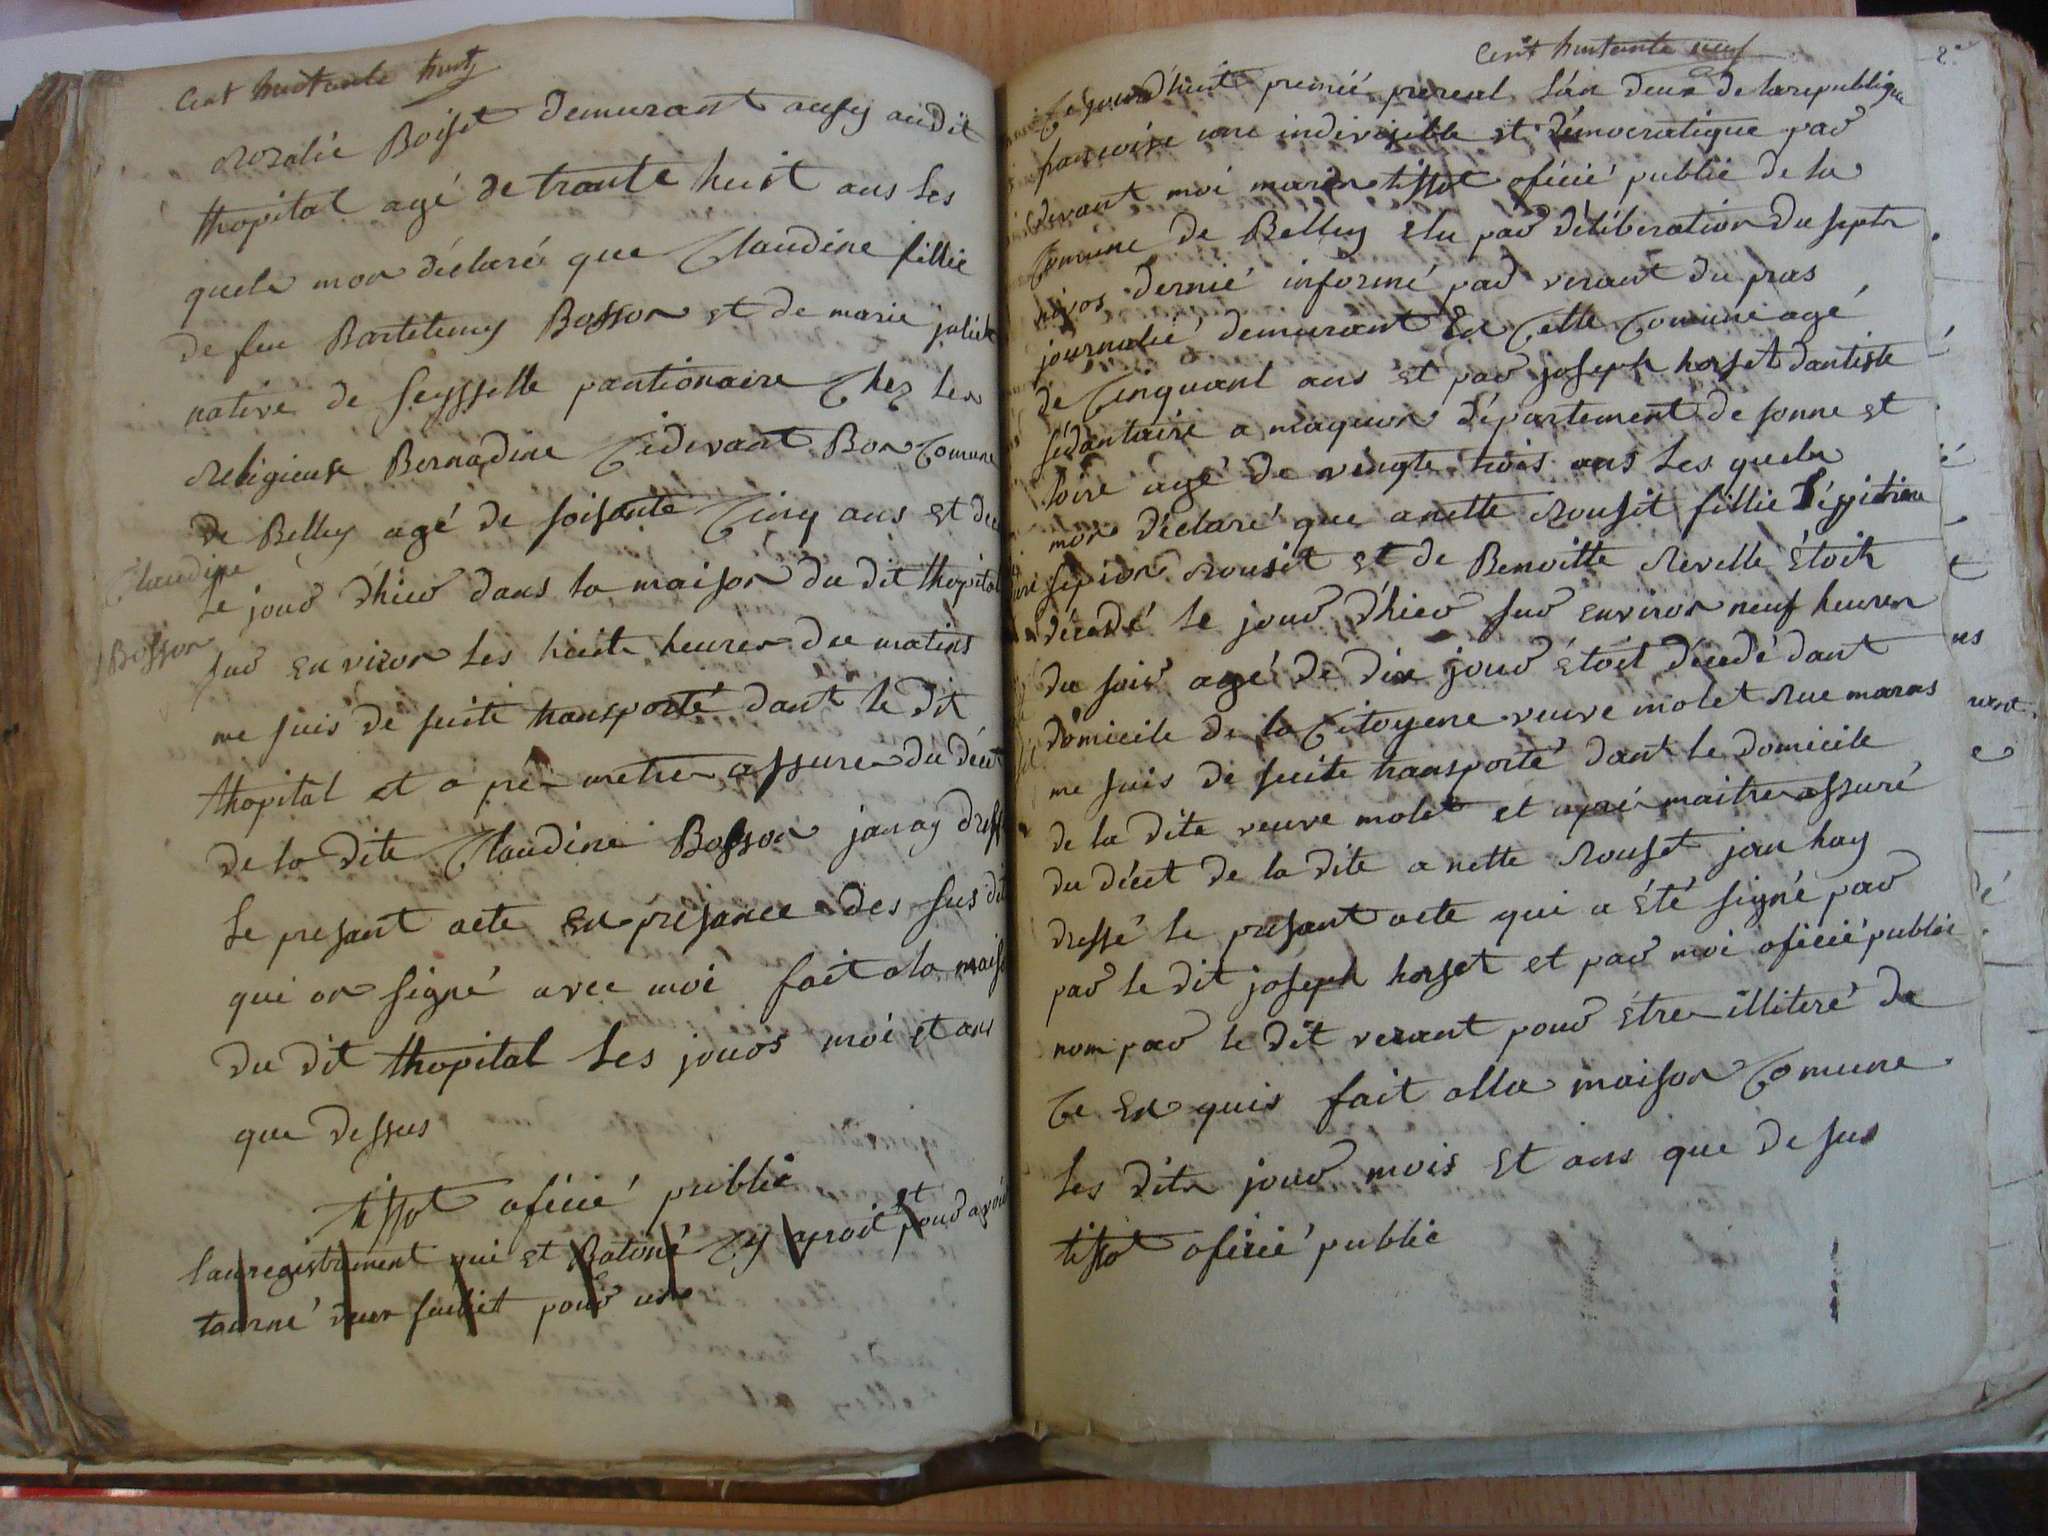 Cent huitante huit
Rozalie Boiset demurant ausy audit
thopital agé de trante huit ans Les
quels mon déclaré que Claudine fillie
de feu Bartelemy Bosson et de marie juliet
native de Seysselle pantionaire Chez Les
Religieuse Bernadine Cidevant Bon Comune
de Belley agé de soisante Cinq ans et de
Claudine
Bosson
Le jour d'hier dans la maison du dit thopital
sur environ Les huite heures du matins
me suis de suite transporté dant le dit
thopital et a pré metre assure du décet
de la dite Claudine Bosson jan ay dress
Le presant acte en presance des sus dit
qui on signé avec moi fait a la maiso
du dit thopital Les jours moi et ans
que dessus
tissot oficié public
Lanregistrement qui et Batoné Cy aproit et pour avoir
tourné deux fuliet pour un
Cent huitante neuf
2
Cejourd'huit premié prereal L'an deux de la republique
francoise une indivisible et démocratique par
devant moi marin tissot oficié public de la
Comune de Belley elu par déliberation du septr
nivos dernié informé par verant du pras
journalié demurant en Cette Comune agé
de Cinquant ans et par joseph horset dantiste
sédantaire a maquon département de sonne et
loire agé de vingte trois ans Les quels
mon déclaré que anette Rousit fillie légitime
sepion Rousit et de Benoitte Revelle étoit
décedé le jour d'hier sur environ neuf heures
du soir agé de dix jour étoit décedé dant
domicile de la Citoyene veuve molet Rue maras
me suis de suite transporté dant le domicile
de la dite veuve molet et apré maitre assuré
du décet de la dite anette Rouset jan hay
dressé le presant acte qui a été signé par
par le dit joseph horset et par moi oficié public
nom par le dit verant pour étre illiteré de
Ce en quis fait alla maison Comune
Les dits jour mois et ans que desus
tissot oficié public